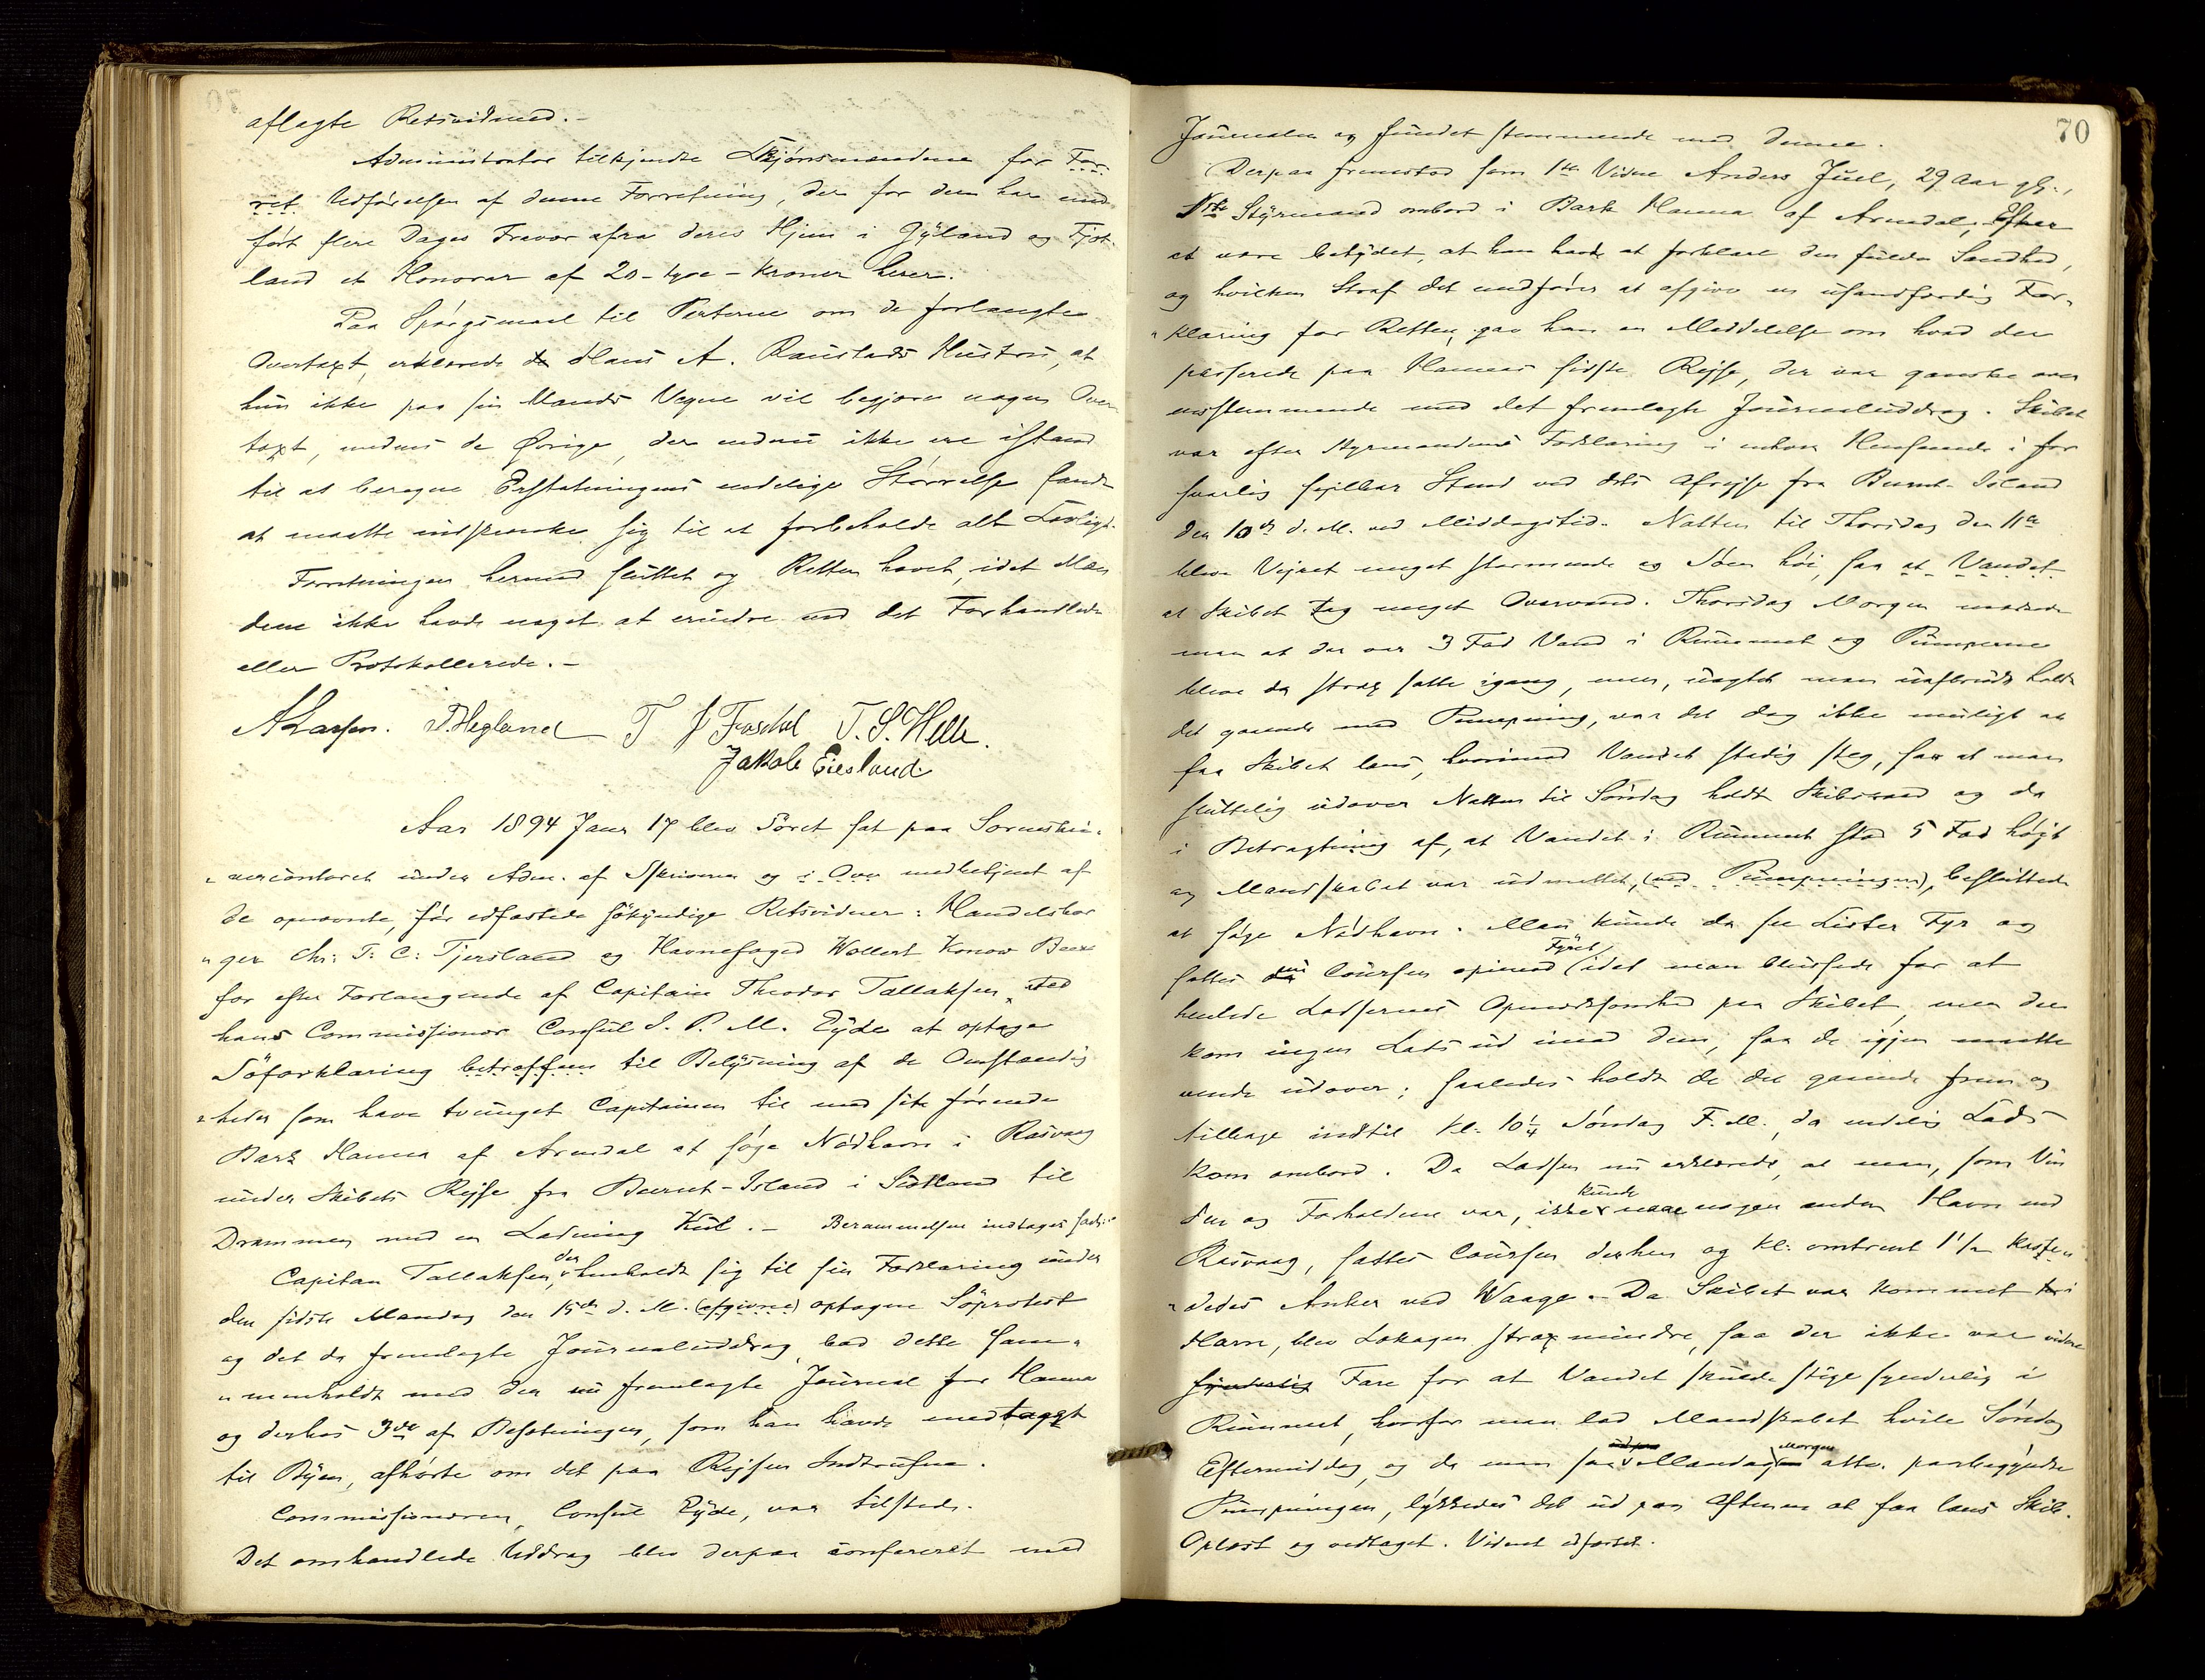 aflagte Retsvidned. -
Administrator tilkjendte Skjønsmændene for For-
ret Udførelsen af denne Forretning, der for dem har med
ført flere Dages Fravær afra deres Hjem i Gyland og Fjot-
land et Honorar af 20 - tyve - Kroner hver.
Paa Spørgsmaal til Parterne om de forlangte
Overtaxt, erklærede de Hans A. Raustads Hustru, at
hun ikke paa sin Mands Vegne vil begjære nogen Over
taxt, medens de Øvrige, der endnu ikke ere istand
til at beregne Erstatningens endelige Størrelse fandt
at maatte indskrænke sig til at forbeholde alt Lovligt.
Forretningen hermed sluttet og Retten hævet, idet Mæn
dene ikke havde noget at erindre ved det Forhandlede
eller Protokollerede. -
A Larsen. T. Hegland T J Fasdal T. S. Helle.
Jakob Eiesland
Aar 1894 Janr 17 blev Søret sat paa Sorenskri-
vercontoret under Adm. af Skriveren og i Ove medbetjent af
de opnævnte, før edfæstede søkyndige Retsvidner: Handelsbor
ger Chr. T. C. Tjersland og Havnefoged Wollert Konow Beer
for efter Forlangende af Capitain Theodor Tallaksen ved
hans Commissionær Consul J. P. M. Eyde at optage
Søforklaring betræffen til Belysning af de Omstændig
heder som have tvunget Capitainen til med sit førende
Bark Hanna af Arendal at søge Nødhavn i Rasvaag
under Skibets Rejse fra Burnt-Island i Skotland til
Drammen med en Ladning Kul. - Berammelsen indtages
Capitan Tallaksen, der henholdt sig til sin Forklaring under
den sidste Mandag den 15de d. M. (afgivne) optagne Søprotest
og det da fremlagte Journaluddrag bad dette sam-
menholdt med den nu fremlagte Journal for Hanna
og derhos 3de af Besætningen, som han havde medtaget
til Byen, afhørte om det paa Rejsen Indtrufne.
Commissionæren, Consul Eyde, var tilstede.
Det omhandlede Uddrag blev derpaa confereret med
70
Journalen og fundet stemmende med denne.
Derpaa fremstod som 1ste Vidne Anders Juel, 29 Aar gl.,
1ste Styrmand ombord i Bark Hanna af Arendal, Efter
at være betydet, at han havde at forklare den fulde Sandhed,
og hvilken Straf det medfører at afgive en usandfærdig For-
klaring for Retten, gav han en Meddelelse om hvad der
passerede paa Hannas sidste Rejse, der var ganske over
ensstemmende med det fremlagte Journaluddrag. Skibet
var efter Styrmandens Forklaring i enhver Henseende i for
svarlig sejlbar Stand ved dets Afrejse fra Burnt-Island
den 10de d. M. ved Middagstid. Natten til Thorsdag den 11te
blev Vejret meget stormende og Søen høi, saa at Vandet
at Skibet tog meget Overvand. Thorsdag Morgen mærkede
man at der var 3 Fod Vand i Rummet og Pumperne
bleve da strax satte igang, men, uagtet man uafbrudt holdt
det gaaende med Pumpning, var det dog ikke muligt at
faa Skibet læns, hvorimod Vandet stadig steg, saa at man
sluttelig udover Natten til Søndag holdt Skibsraad og da
i Betragtning af, at Vandet i Rummet stod 5 Fod højt
og Mandskabet var udmattet, (ved Pumpningen), besluttede
at søge Nødhavn. Man kunde da see Lister Fyr og
sattes nu Coursen opimod Fyret, idet man blussede for at
henlede Lodsernes Opmærksomhed paa Skibet, men der
kom ingen Lods ud imod dem, saa de igjen maatte
vende udover; saaledes holdt de det gaaende frem og
tilbage indtil Kl. 10¼ Søndag F. M., da endelig Lods
kom ombord. Da Lodsen nu erklærede, at man, som Vin
den og Forholdene var, ikke kunde naae nogen anden Havn end
Rasvaag, sattes Coursen derhen og Kl. omtrent 1½ kaste-
dedes Anker ved Waage. - Da Skibet var kommet i
Havn, blev Lækagen strax mindre, saa der ikke var videre
synderlig Fare for at Vandet skulde stige synderlig i
Rummet, hvorfor man lod Mandskabet hvile Søndag
Eftermiddag, og da man saa Mandag Morgen atter paabegyndte
Pumpningen, lykkedes det ud paa Aftenen at faa læns Skib.
Oplæst og vedtaget. Vidnet edfæstet.